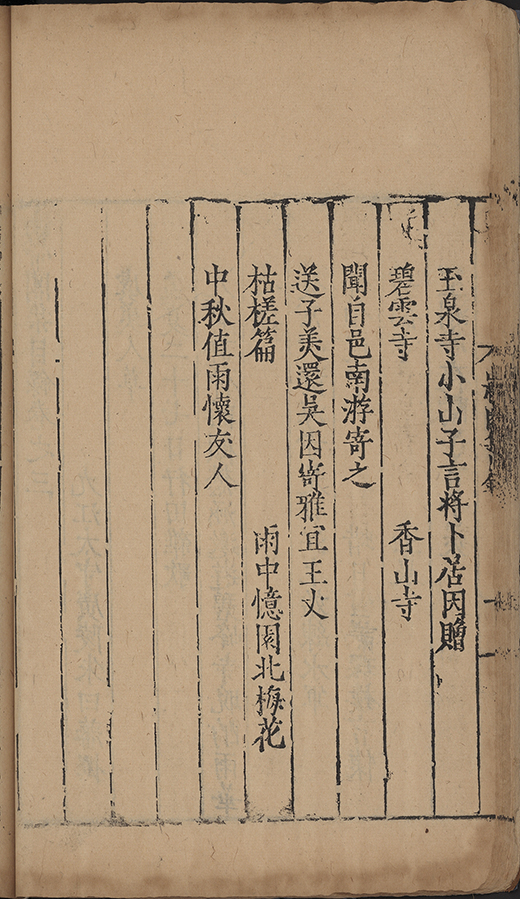 玉泉寺小山子言將卜居因贈
碧雲寺 香山寺
聞自邑南游寄之
送子美還吳因寄雅宜王丈
枯槎篇 雨中憶園北梅花
中秋值雨懷友人